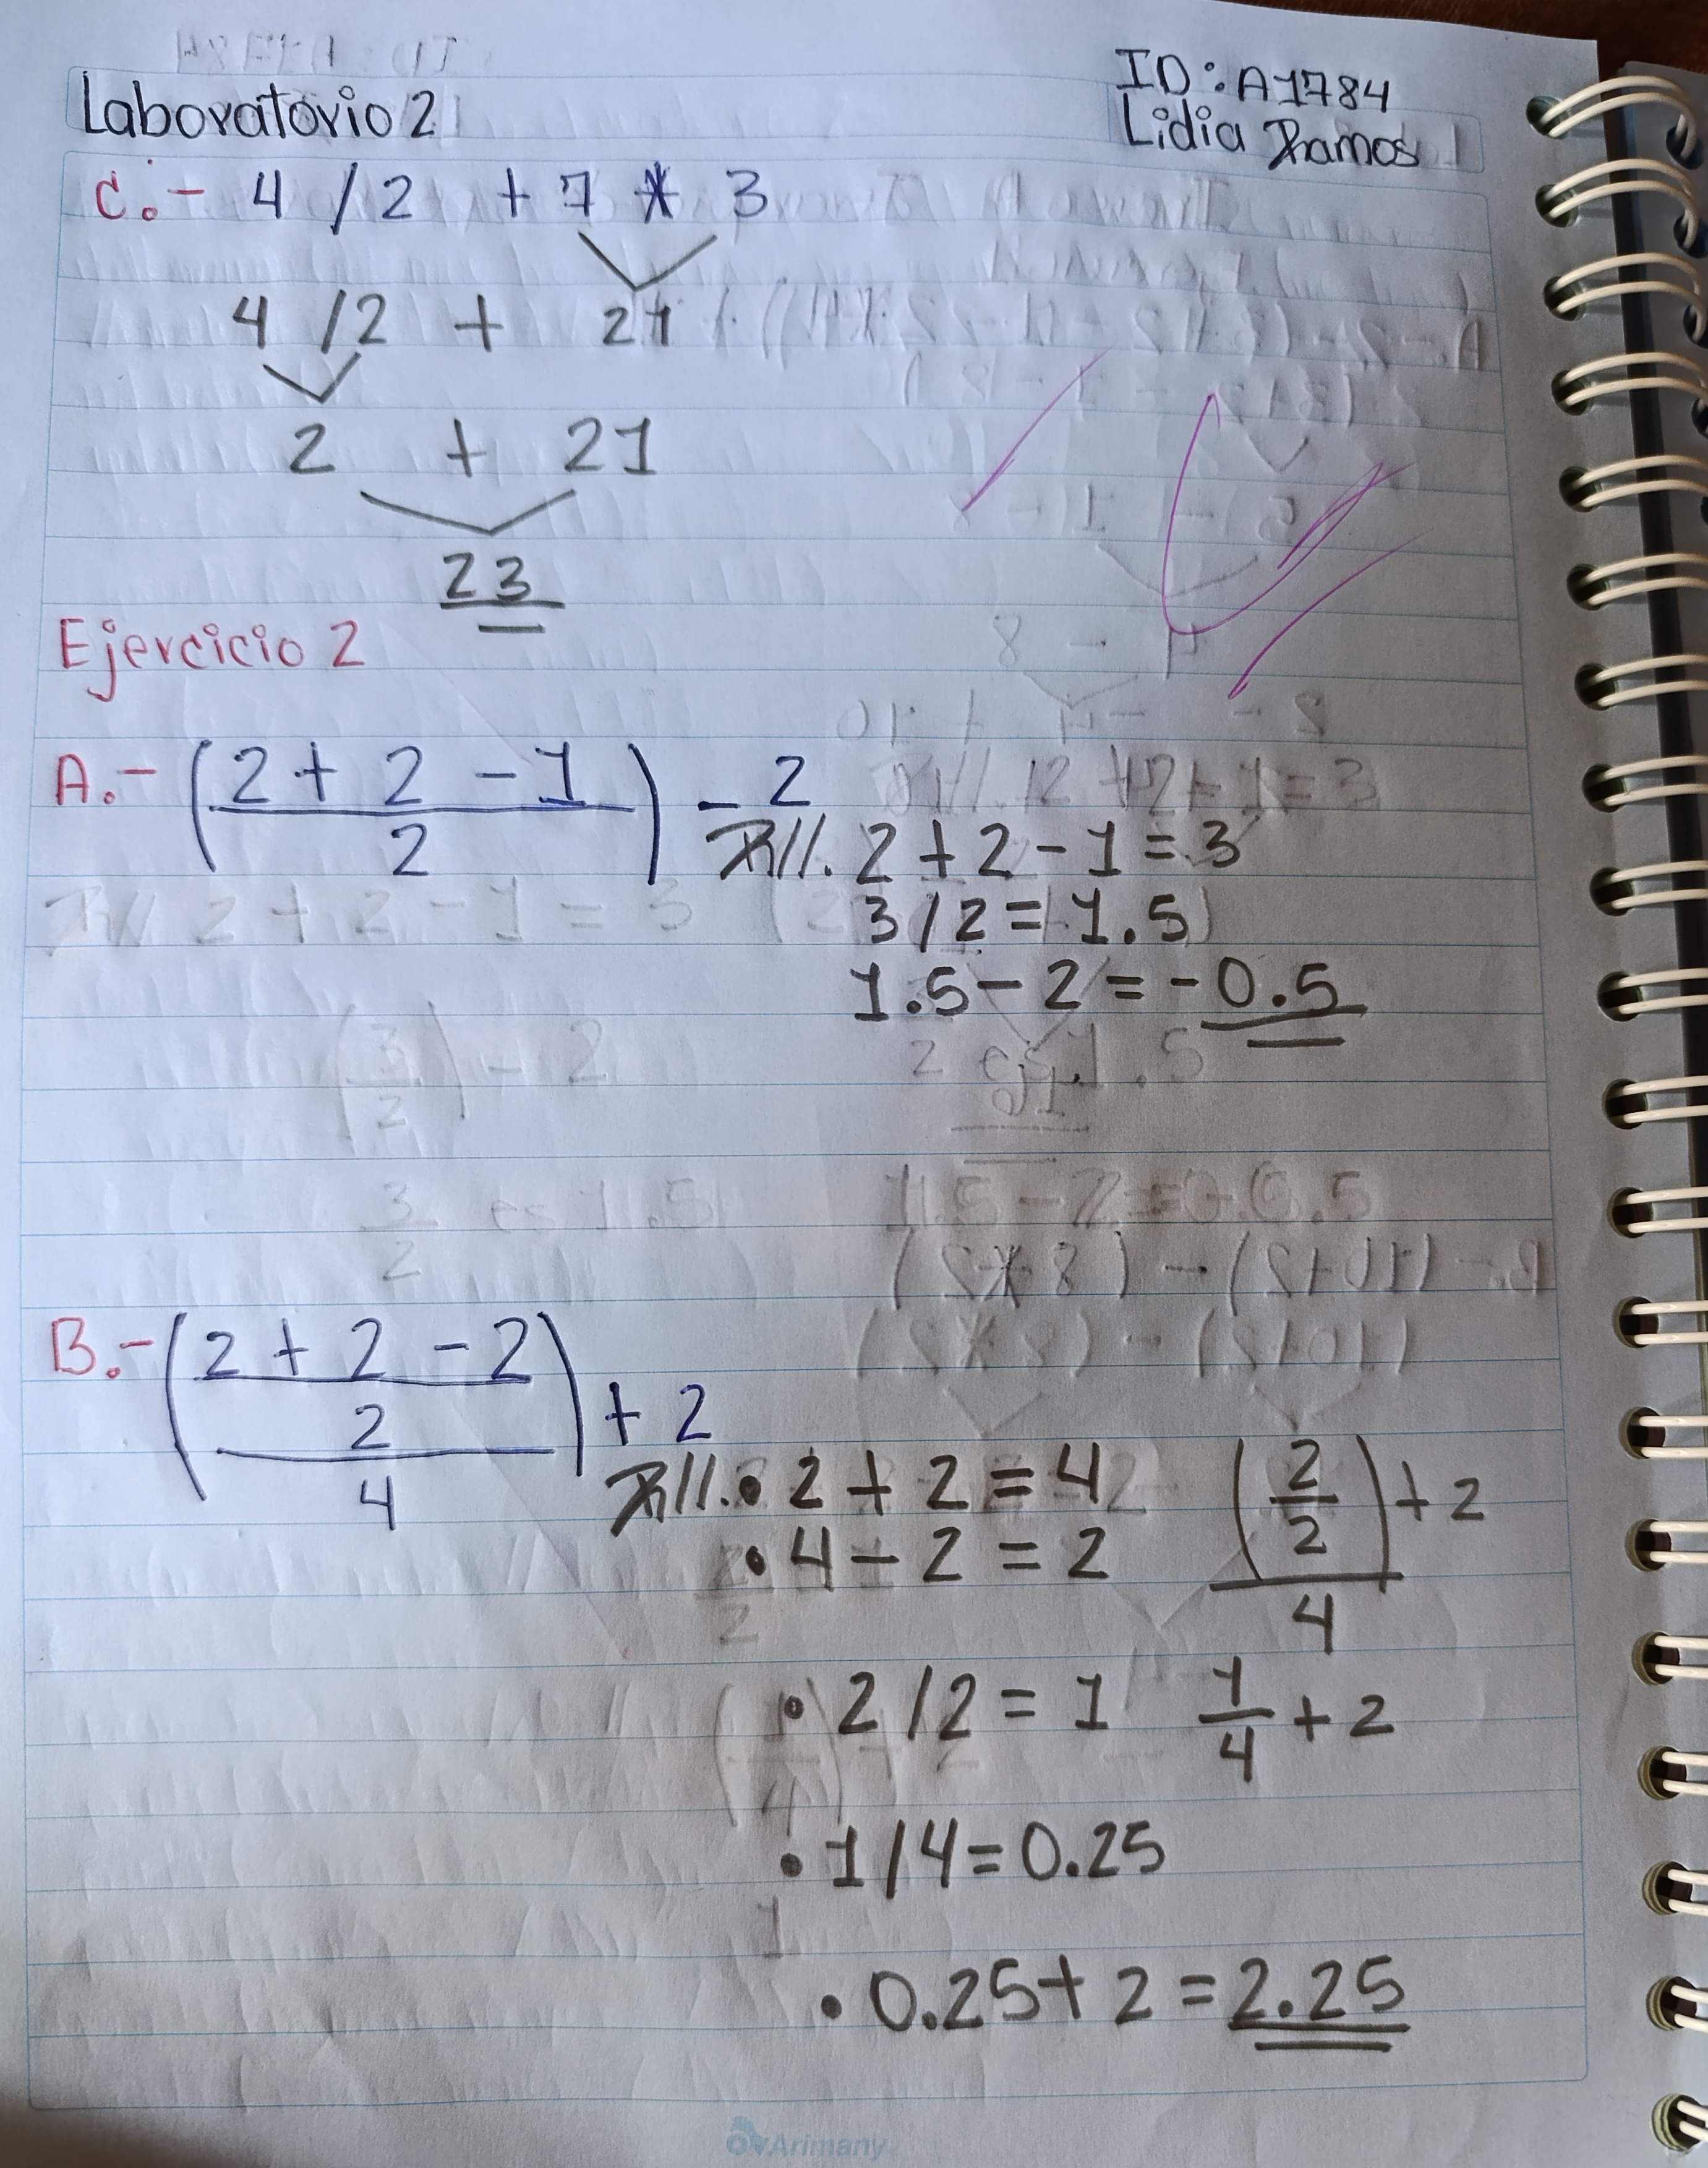 Laboratorio 2
ID: A1784
Lidia Ramos
C.- 4 / 2 + 7 * 3
4 / 2 + 21
2 + 21
23
Ejercicio 2
A.- (2 + 2 - 1 / 2) - 2
R//. 2 + 2 - 1 = 3
3 / 2 = 1.5
1.5 - 2 = -0.5
B.- (2 + 2 - 2 / 2 / 4) + 2
R//. • 2 + 2 = 4
(2/2) + 2
4
• 4 - 2 = 2
• 2 / 2 = 1
1/4 + 2
• 1 / 4 = 0.25
• 0.25 + 2 = 2.25
Arimany